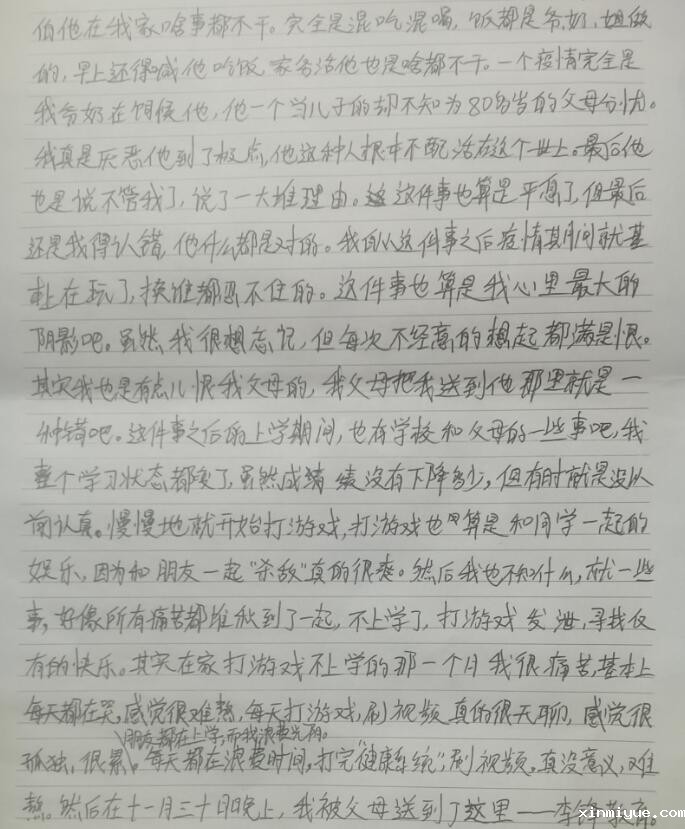 伯他在我家啥事都不干。完全是混吃混喝，饭都是爷，奶，姐做
的，早上还得喊他吃饭，家务活他也是啥都不干。一个疫情完全是
我爷奶在伺候他，他一个当儿子的却不知为80多岁的父母分忧。
我真是厌恶他到了极点，他这种人根本不配活在这个世上。最后他
也是说不管我了，说了一大堆理由。这件事也算是平息了，但最后
还是我得认错，他什么都是对的。我自从这件事之后疫情其间就基
本上在玩了，换谁都忍不住的。这件事也算是我心里最大的
阴影吧。虽然我很想忘记，但每次不经意的想起都满是恨。
其实我也是有点儿恨我父母的，我父母把我送到他那里就是一
种错吧。这件事之后的上学期间，也有学校和父母的一些事吧，我
整个学习状态都变了，虽然成绩没有下降多少，但有时就是没以
前认真。慢慢地就开始打游戏，打游戏也算是和同学一起的
娱乐，因为和朋友一起“杀敌”真的很爽。然后我也不知什么，就一些
事，好像所有痛苦都堆积到了一起，不上学了，打游戏发泄，寻找仅
有的快乐。其实在家打游戏不上学的那一个月我很痛苦，基本上
每天都在哭，感觉很难熬，每天打游戏，刷视频真的很无聊，感觉很
朋友都在上学，而我浪费光阴。
孤独，很累。每天都在浪费时间，打完“健康系统”，刷视频，真没意义，难
熬。然后在十一月三十日晚上，我被父母送到了这里——李锋教育。
xinmiyue.com